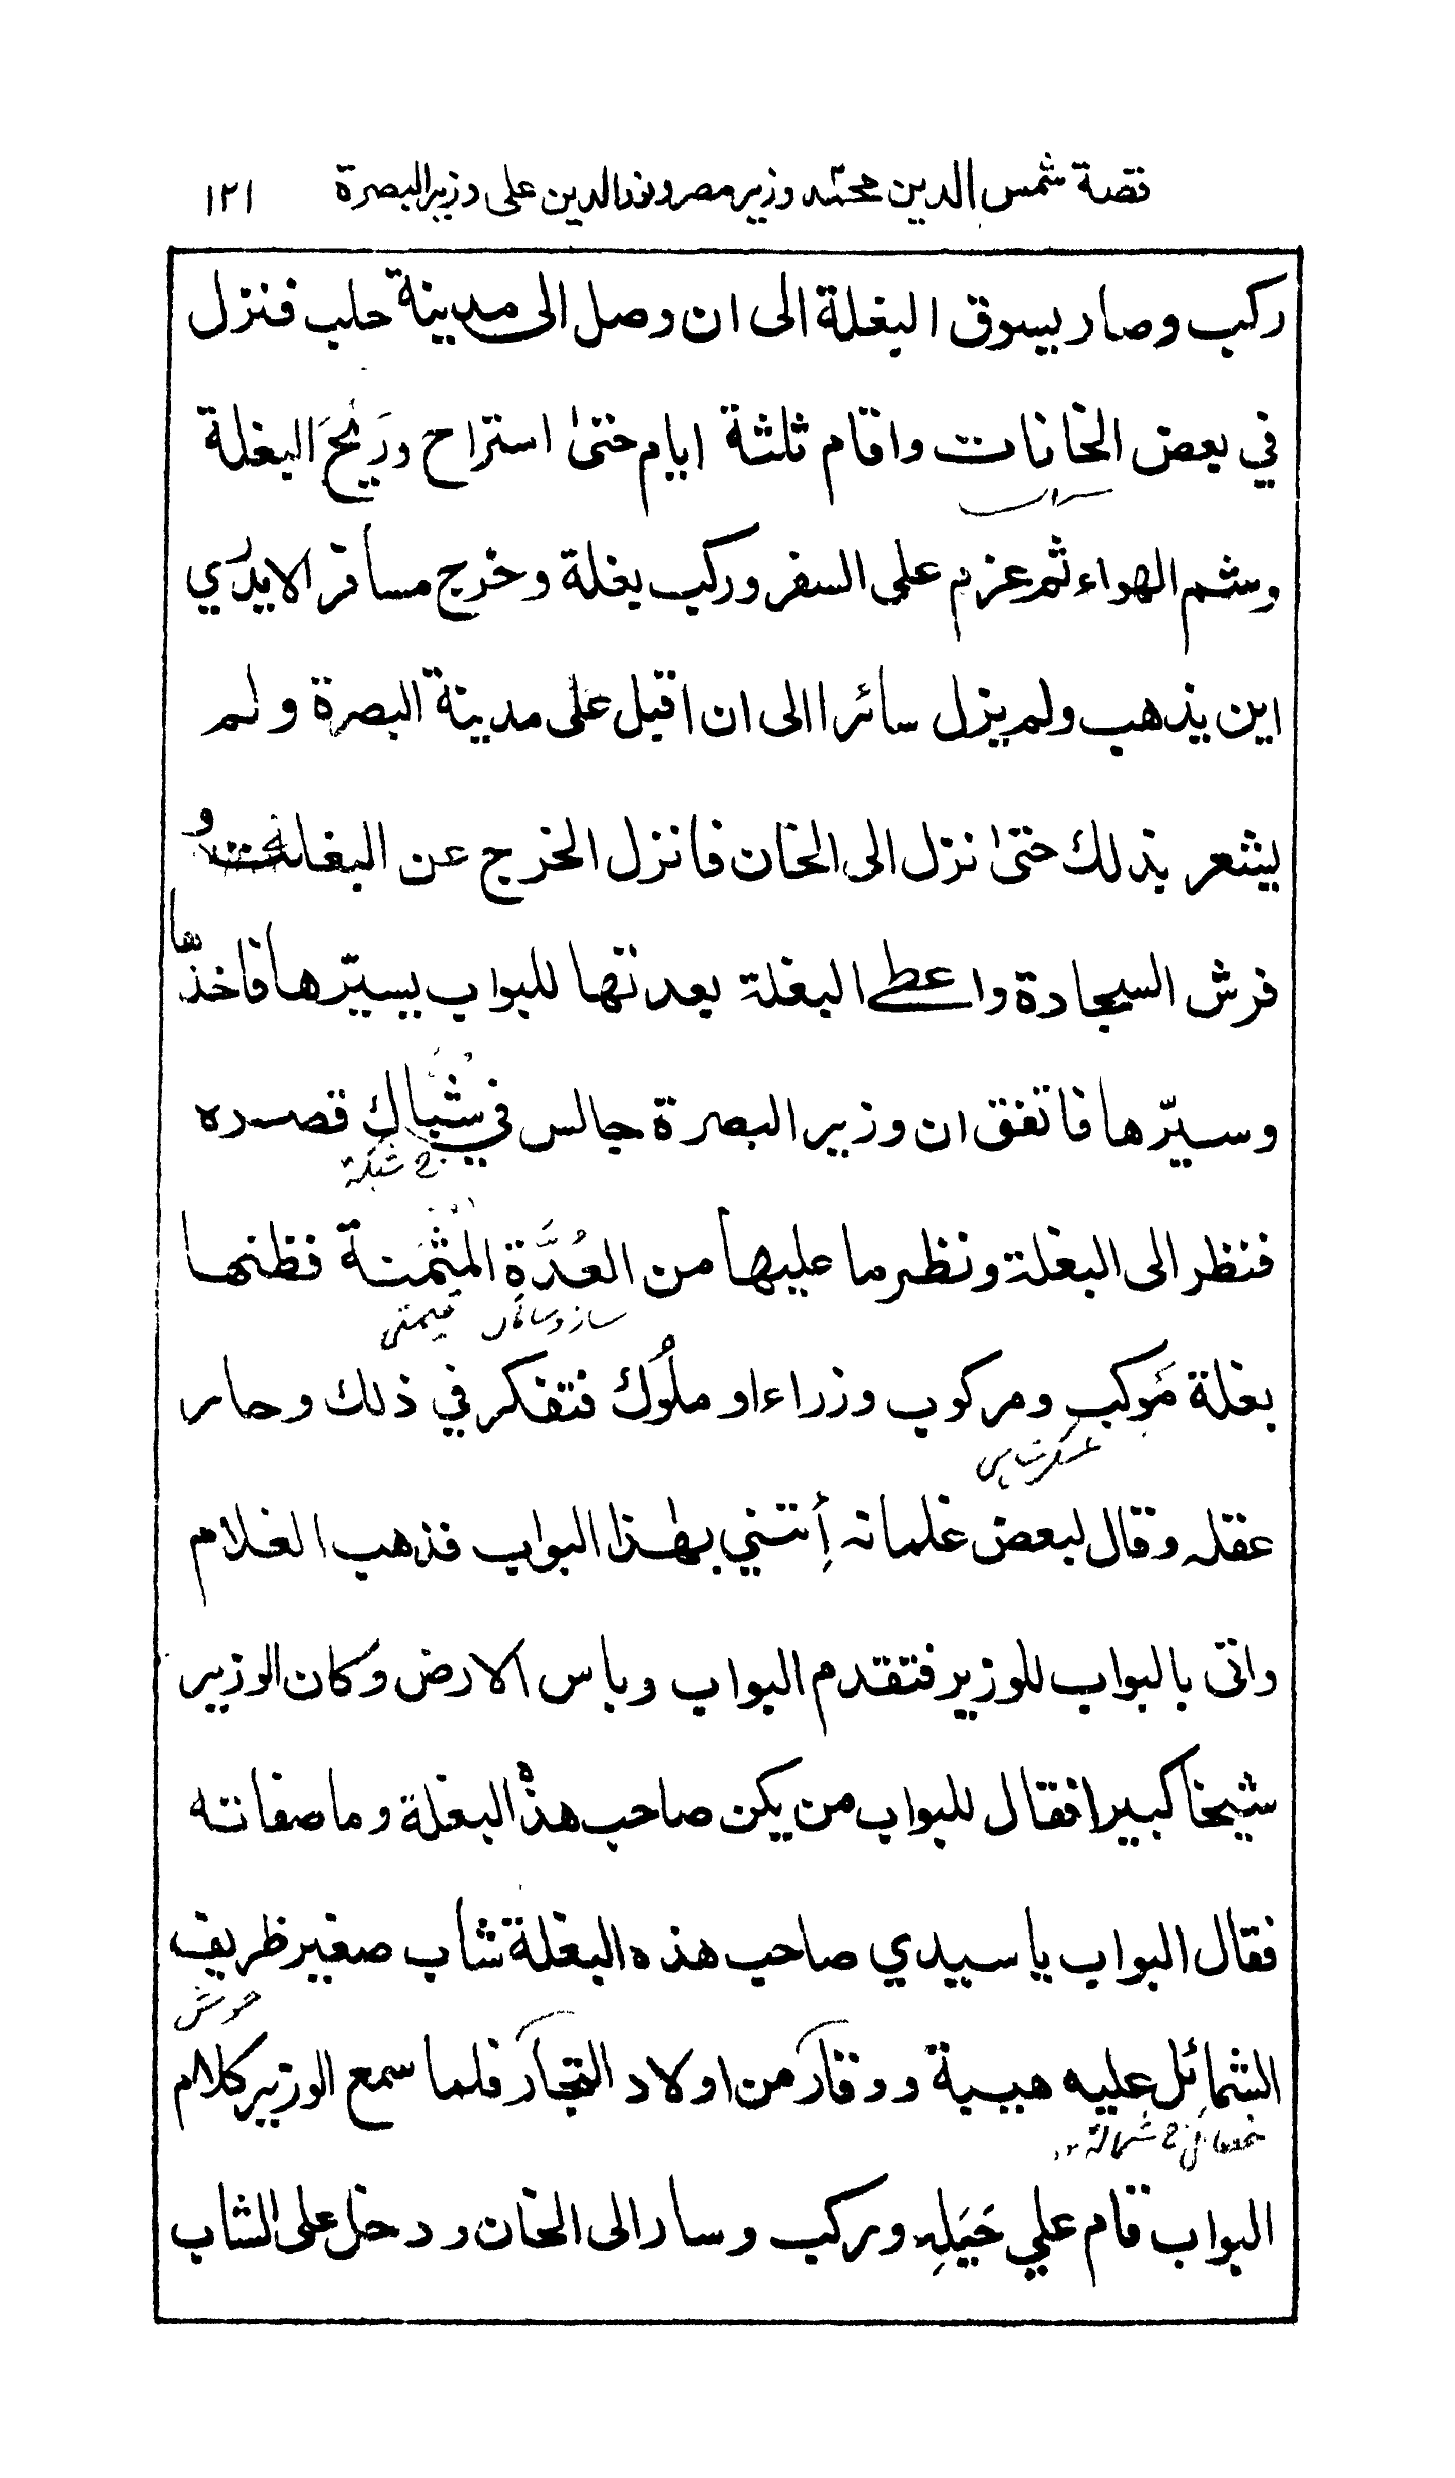 قصة شمس الدين محمّد وزير مصر ونور الدين على وزير البصرة ١٢١
ركب وصار يسوق البغلة الى ان وصل الى مدينة حلب فنزل
في بعض الخانات واقام ثلثة ايام حتىٰ استراح ورَيَّحَ البغلة
وشم الهواء ثم عزم على السفر وركب بغلة وخرج مسافر الا يدري
اين يذهب ولم يزل سائرا الى ان اقبل على مدينة البصرة ولم
يشعر بذلك حتىٰ نزل الى الخان فانزل الخرج عن البغلة و
فرش السجادة واعطے البغلة بعدتها للبواب يسيّرها فاخذها
وسيّرها فاتفق ان وزير البصرة جالس في شُبَّاك قصره
ج شبكة
فنظر الى البغلة ونظر ما عليها من العُدَّةِ المُثمَنة فظنها
ساز وسامان قيمتى
بغلة مَوكب ومركوب وزراء او ملُوك فتفكر في ذلك وحار
عقله وقال لبعض غلمانه أِئتني بهٰذا البواب فذهب الغلام
واتى بالبواب للوزير فتقدم البواب وباس الارض وكان الوزير
شيخا كبيرا فقال للبواب من يكن صاحب هذه البغلة وما صفاته
فقال البواب يا سيدي صاحب هذه البغلة شاب صغير ظريف
خوش
الشمائل عليه هيبة ووقار من اولاد التجار فلما سمع الوزير كلام
خصائل ج شمالة ١٢
البواب قام علي حَيَلِه وركب وسار الى الخان ودخل على الشاب